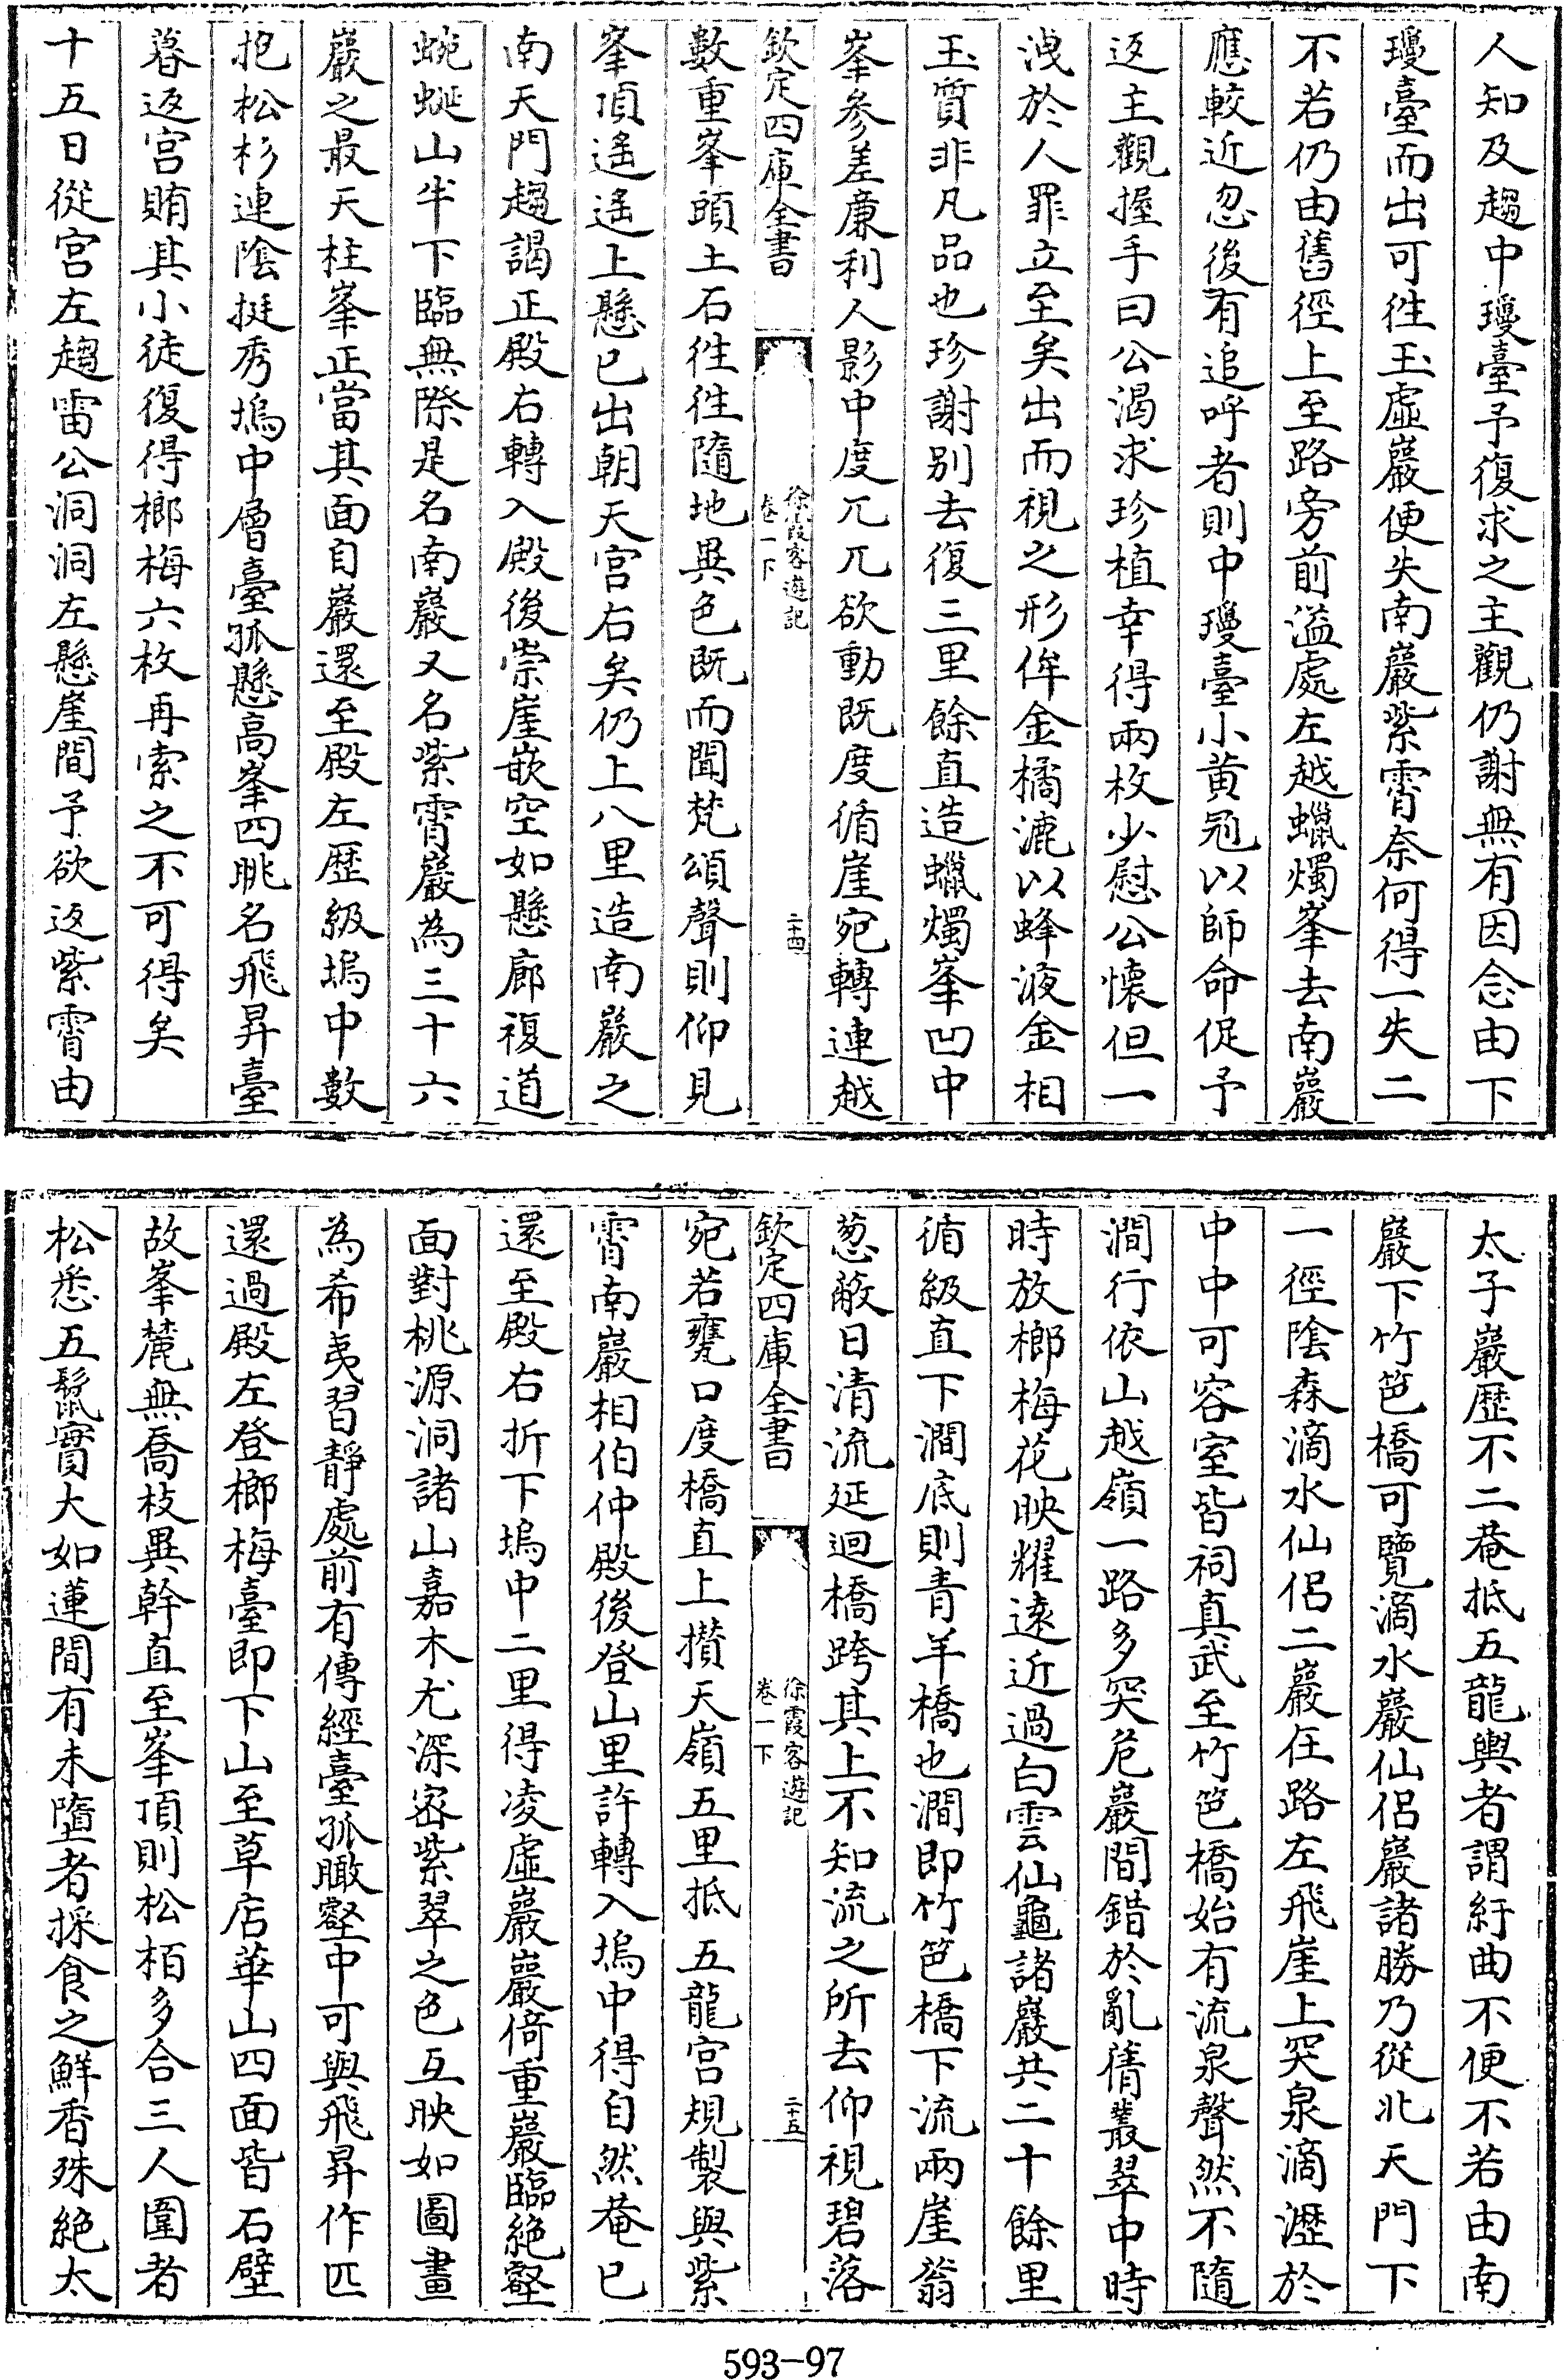 人知及趨中瓊臺予復求之主觀仍謝無有因念由下
瓊臺而出可徃玉虚巖便失南巖紫霄奈何得一失二
不若仍由舊徑上至路旁前溢處左越蠟燭峯去南巖
應較近忽後有追呼者則中瓊臺小黄冠以師命促予
返主觀握手曰公渴求珍植幸得兩枚少慰公懐但一
洩於人罪立至矣出而視之形侔金橘漉以蜂液金相
玉質非凡品也珍謝别去復三里餘直造蠟燭峯凹中
峯參差亷利人影中度兀兀欲動既度循崖宛轉連越
欽定四庫全書
徐霞客遊記
卷一下
二十四
數重峯頭土石徃徃隨地異色既而聞梵頌聲則仰見
峯頂遥遥上懸已出朝天宫右矣仍上八里造南巖之
南天門趨謁正殿右轉入殿後崇崖嵌空如懸廊複道
蜿蜒山半下臨無際是名南巖又名紫霄巖為三十六
巖之最天柱峯正當其面自巖還至殿左歴級塢中數
抱松杉連陰挺秀塢中層臺孤懸高峯四眺名飛昇臺
暮返宫賄其小徒復得榔梅六枚再索之不可得矣
十五日從宫左趨雷公洞洞左懸崖間予欲返紫霄由
太子巖歴不二菴抵五龍輿者謂紆曲不便不若由南
巖下竹笆橋可覽滴水巖仙侣巖諸勝乃從北天門下
一徑陰森滴水仙侣二巖在路左飛崖上突泉滴瀝於
中中可容室皆祠真武至竹笆橋始有流泉聲然不隨
澗行依山越嶺一路多突危巖間錯於亂蒨叢翠中時
時放榔梅花映耀逺近過白雲仙龜諸巖共二十餘里
循級直下澗底則青羊橋也澗即竹笆橋下流兩崖蓊
葱蔽日清流延迴橋跨其上不知流之所去仰視碧落
欽定四庫全書
徐霞客遊記
卷一下
二十五
宛若甕口度橋直上攅天嶺五里抵五龍宫規製與紫
霄南巖相伯仲殿後登山里許轉入塢中得自然菴已
還至殿右折下塢中二里得凌虚巖巖倚重巖臨絶壑
面對桃源洞諸山嘉木尤深宻紫翠之色互映如圖畫
為希夷習靜處前有傳經臺孤瞰壑中可與飛昇作匹
還過殿左登榔梅臺即下山至草店華山四面皆石壁
故峯麓無喬枝異幹直至峯頂則松栢多合三人圍者
松悉五鬛實大如蓮間有未墮者採食之鮮香殊絶太
593-97